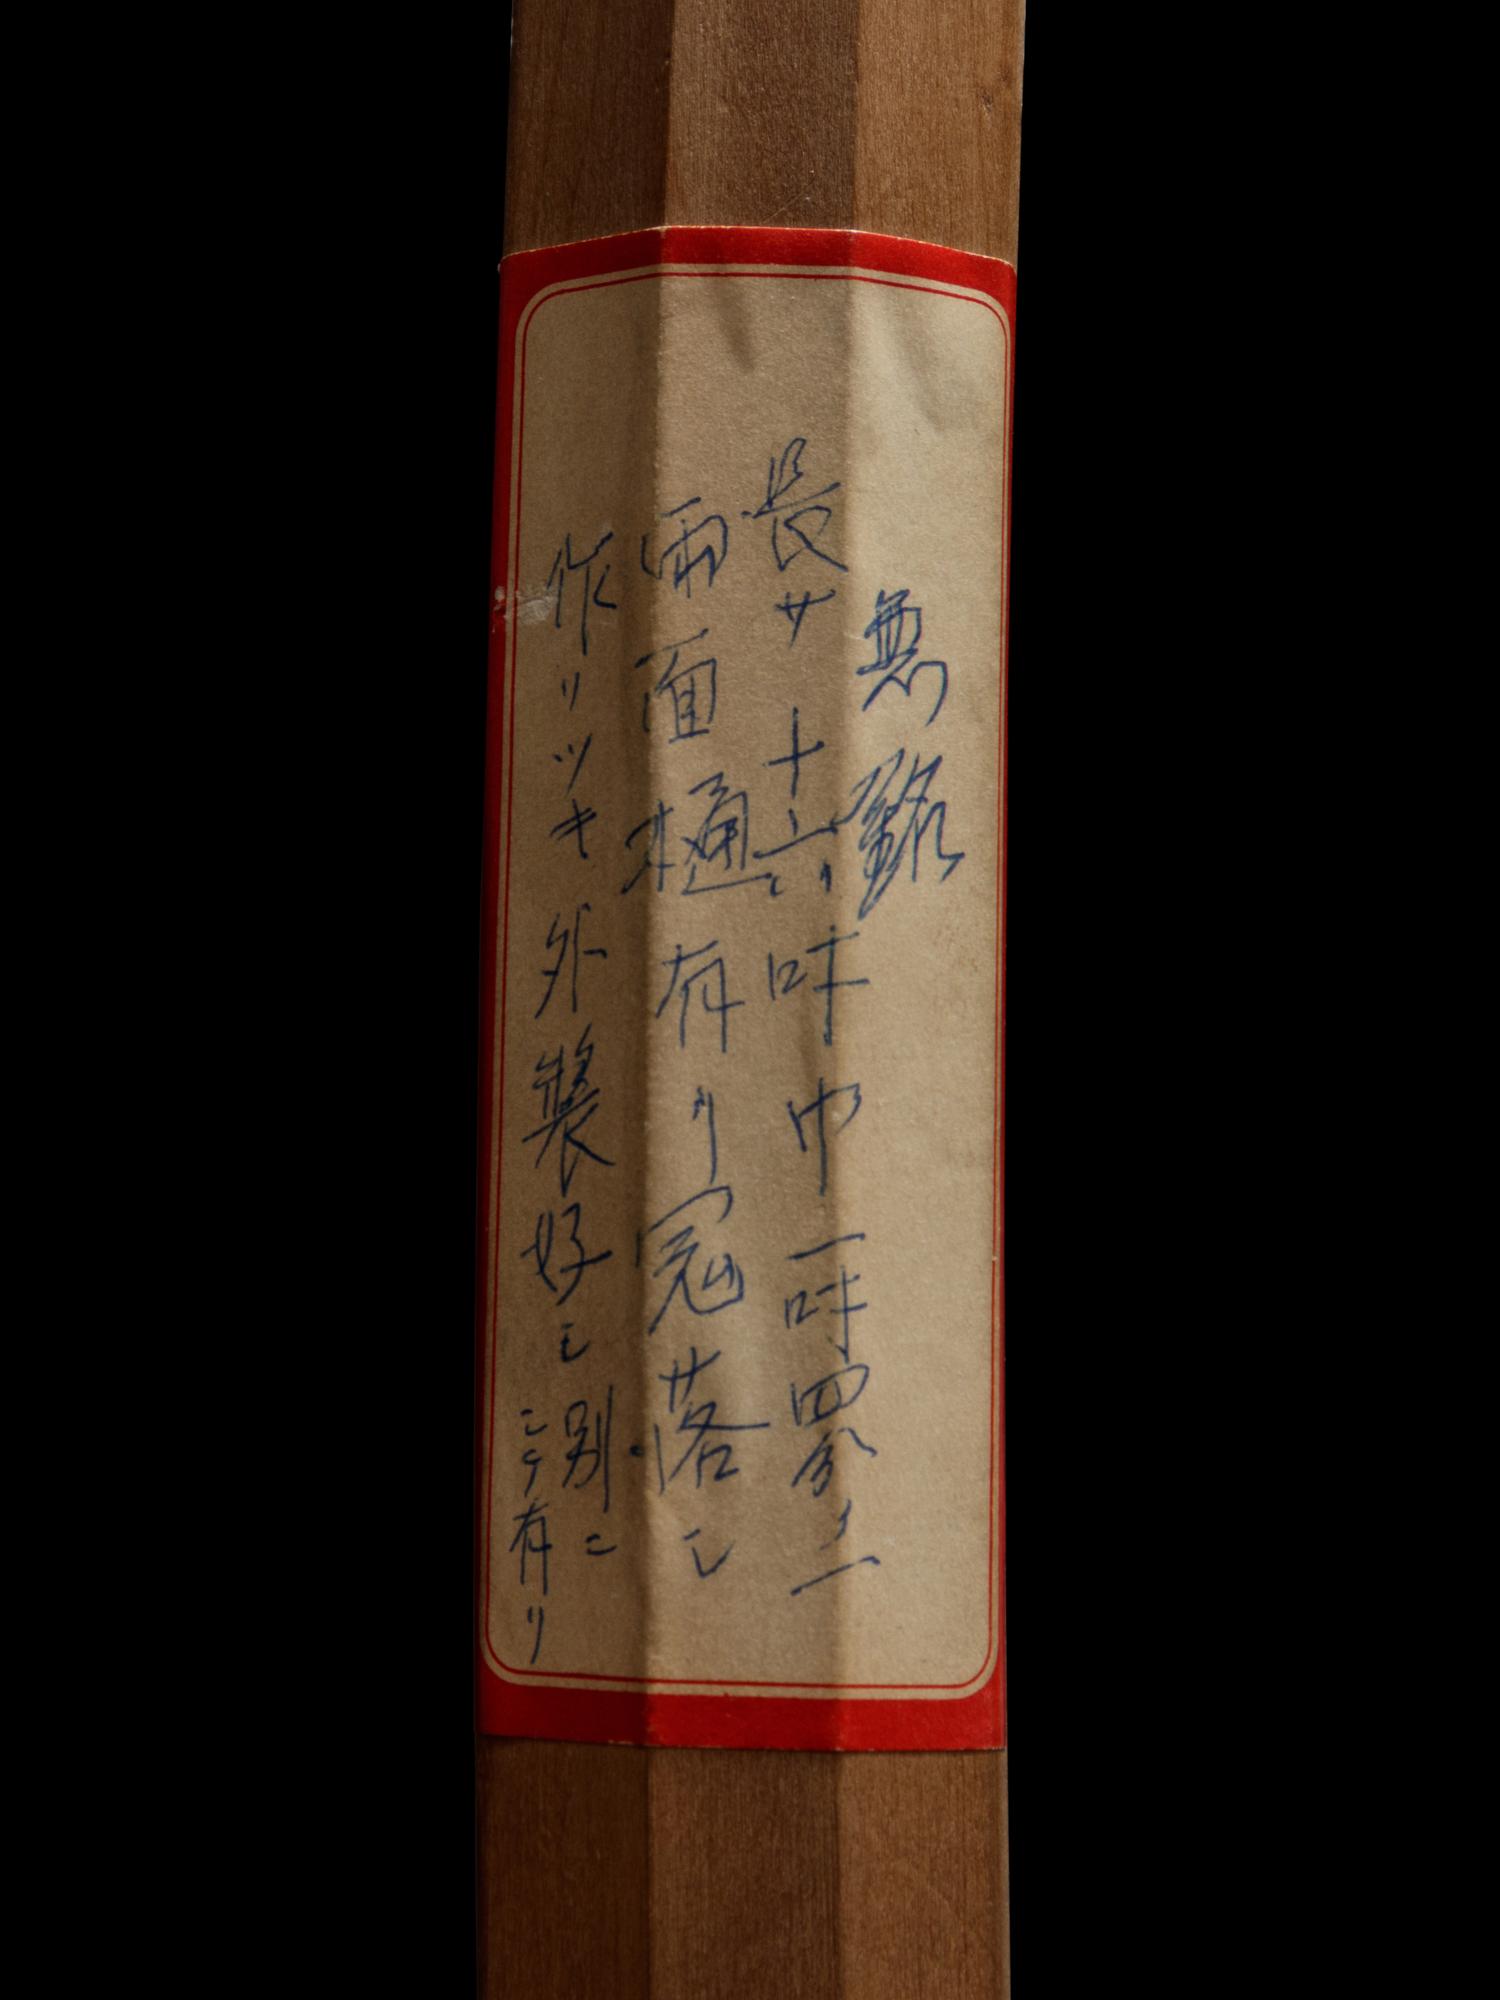 無銘
長サ 十六吋 巾 一吋四分ノ一
両面樋有リ冠落シ
作リツキ外装好シ別ニ
有リ